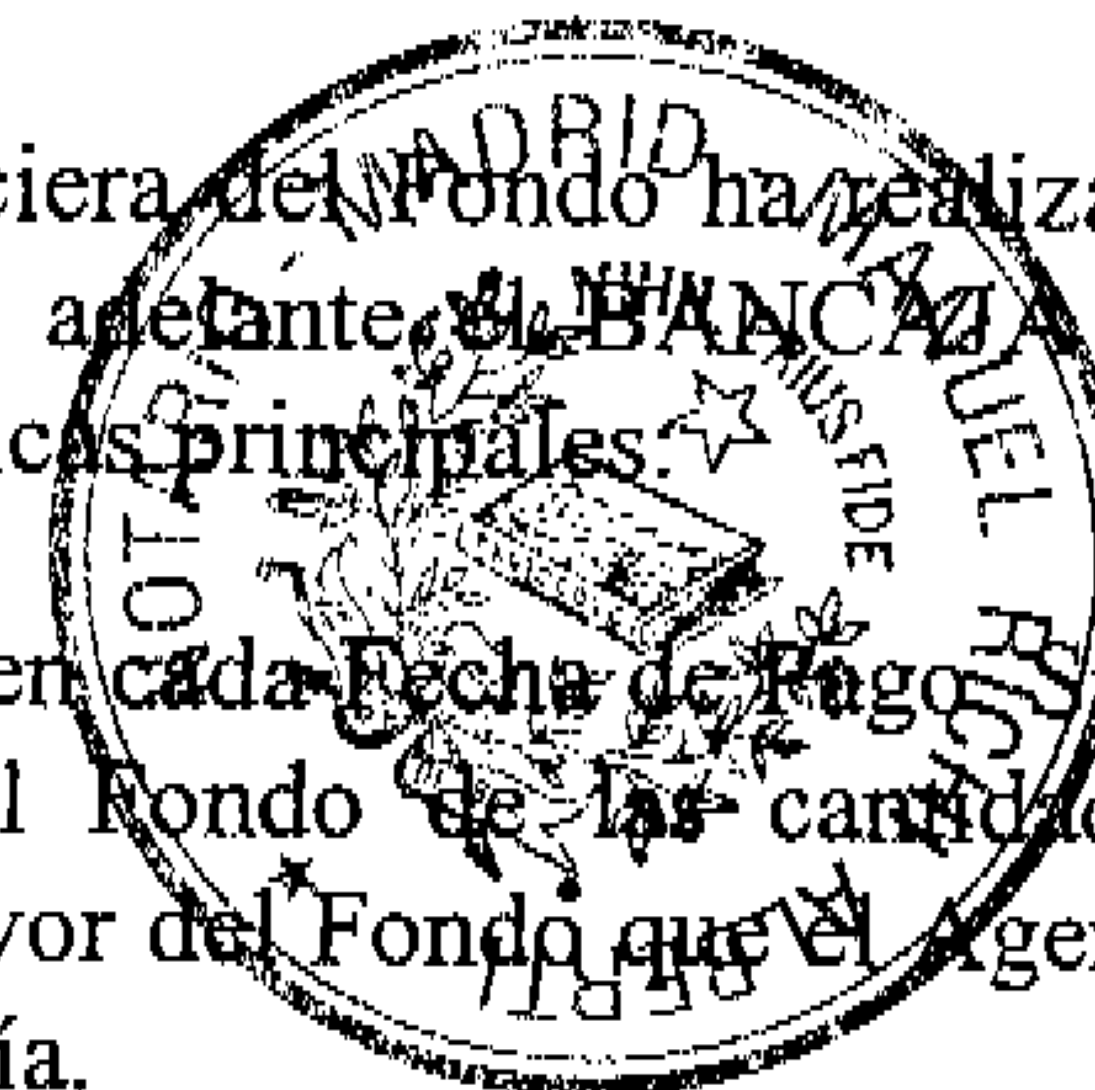 ciera del Fondo ha realiza
adelante el BANCAJA
icas principales:
en cada Fecha de Pago
l Fondo de las cantidad
vor del Fondo que el Agen
ía.
MADRID
MANUEL
NIHIL
PRIUS FIDE